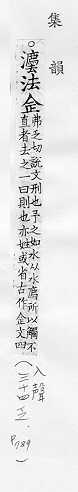 集韻
○灋法佱
弗乏切說文刑也平之如水从水廌所以觸不
直者去之一曰則也亦姓或省古作佱文四
入聲
(三十四乏.
P789)